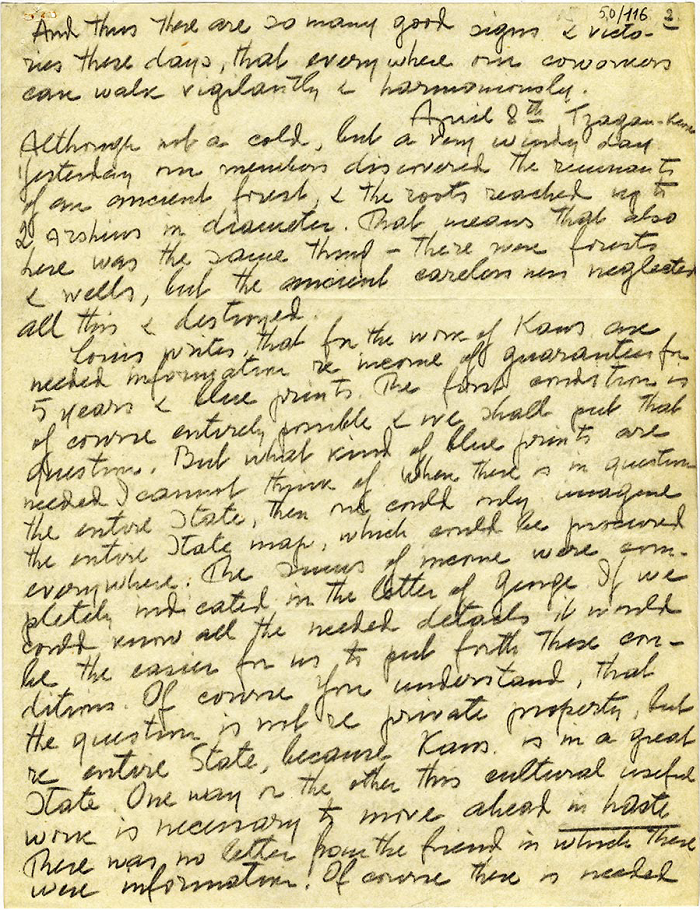 50/116 2
And thus there are so many good signs & victo-
ries these days, that everywhere our coworkers
can walk vigilantly & harmoniously.
April 8th Tzagan-Kure
Although not a cold, but a very windy day.
Yesterday our members discovered the remnants
of an ancient forest, & the roots reached up to
2 arshins in diameter. That means that also
here was the same thing - there were forests
& wells, but the ancient carelessness neglected
all this & destroyed.
Louis writes, that for the work of Kans. are
needed information re income of guarantees for
5 years & blue prints. The first condition is
of course entirely possible & we shall put that
question. But what kind of blue prints are
needed I cannot think of. When there is in question
the entire State, then one could only imagine
the entire State map, which could be procured
everywhere. The sources of income were com-
pletely indicated in the letter of George. If we
could know all the needed details it would
be the easier for us to put forth these con-
ditions. Of course you understand, that
the question is not re private property, but
re entire State, because Kans. is in a great
State. One way or the other this cultural useful
work is necessary to move ahead in haste
There was no letter from the friend in which there
were information. Of course there is needed